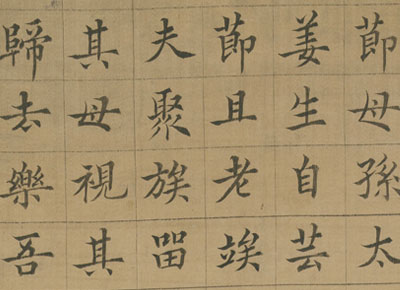 莭母孫太
姜生自芸
莭且老竢
夫聚族留
其母視其
歸去樂吾